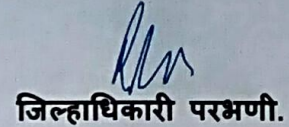 जिल्हाधिकारी परभणी.